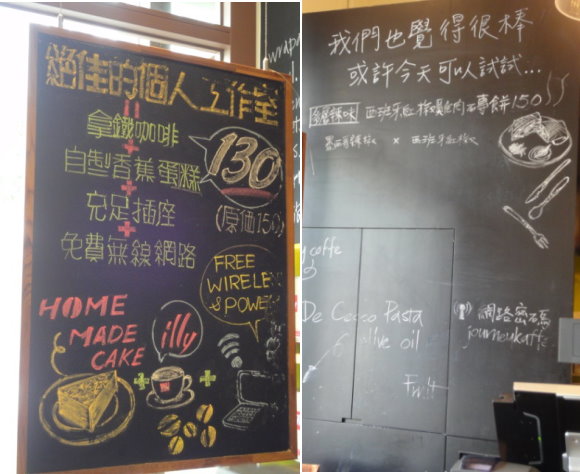 絕佳的個人工作室
=
拿鐵咖啡
+
自製香蕉蛋糕
+
充足插座
+
免費無線網路
130
(原価150)
FREE
WIRELE
& POWE
HOME
MADE
CAKE
illy
+
+
我們也覺得很棒
或許今天可以試試...
西班牙紅椒雞肉石專餅150
墨西哥辣椒 x 西班牙紅椒
coffe
De Cecco Pasta
olive oil
網路密碼
journeykaffe